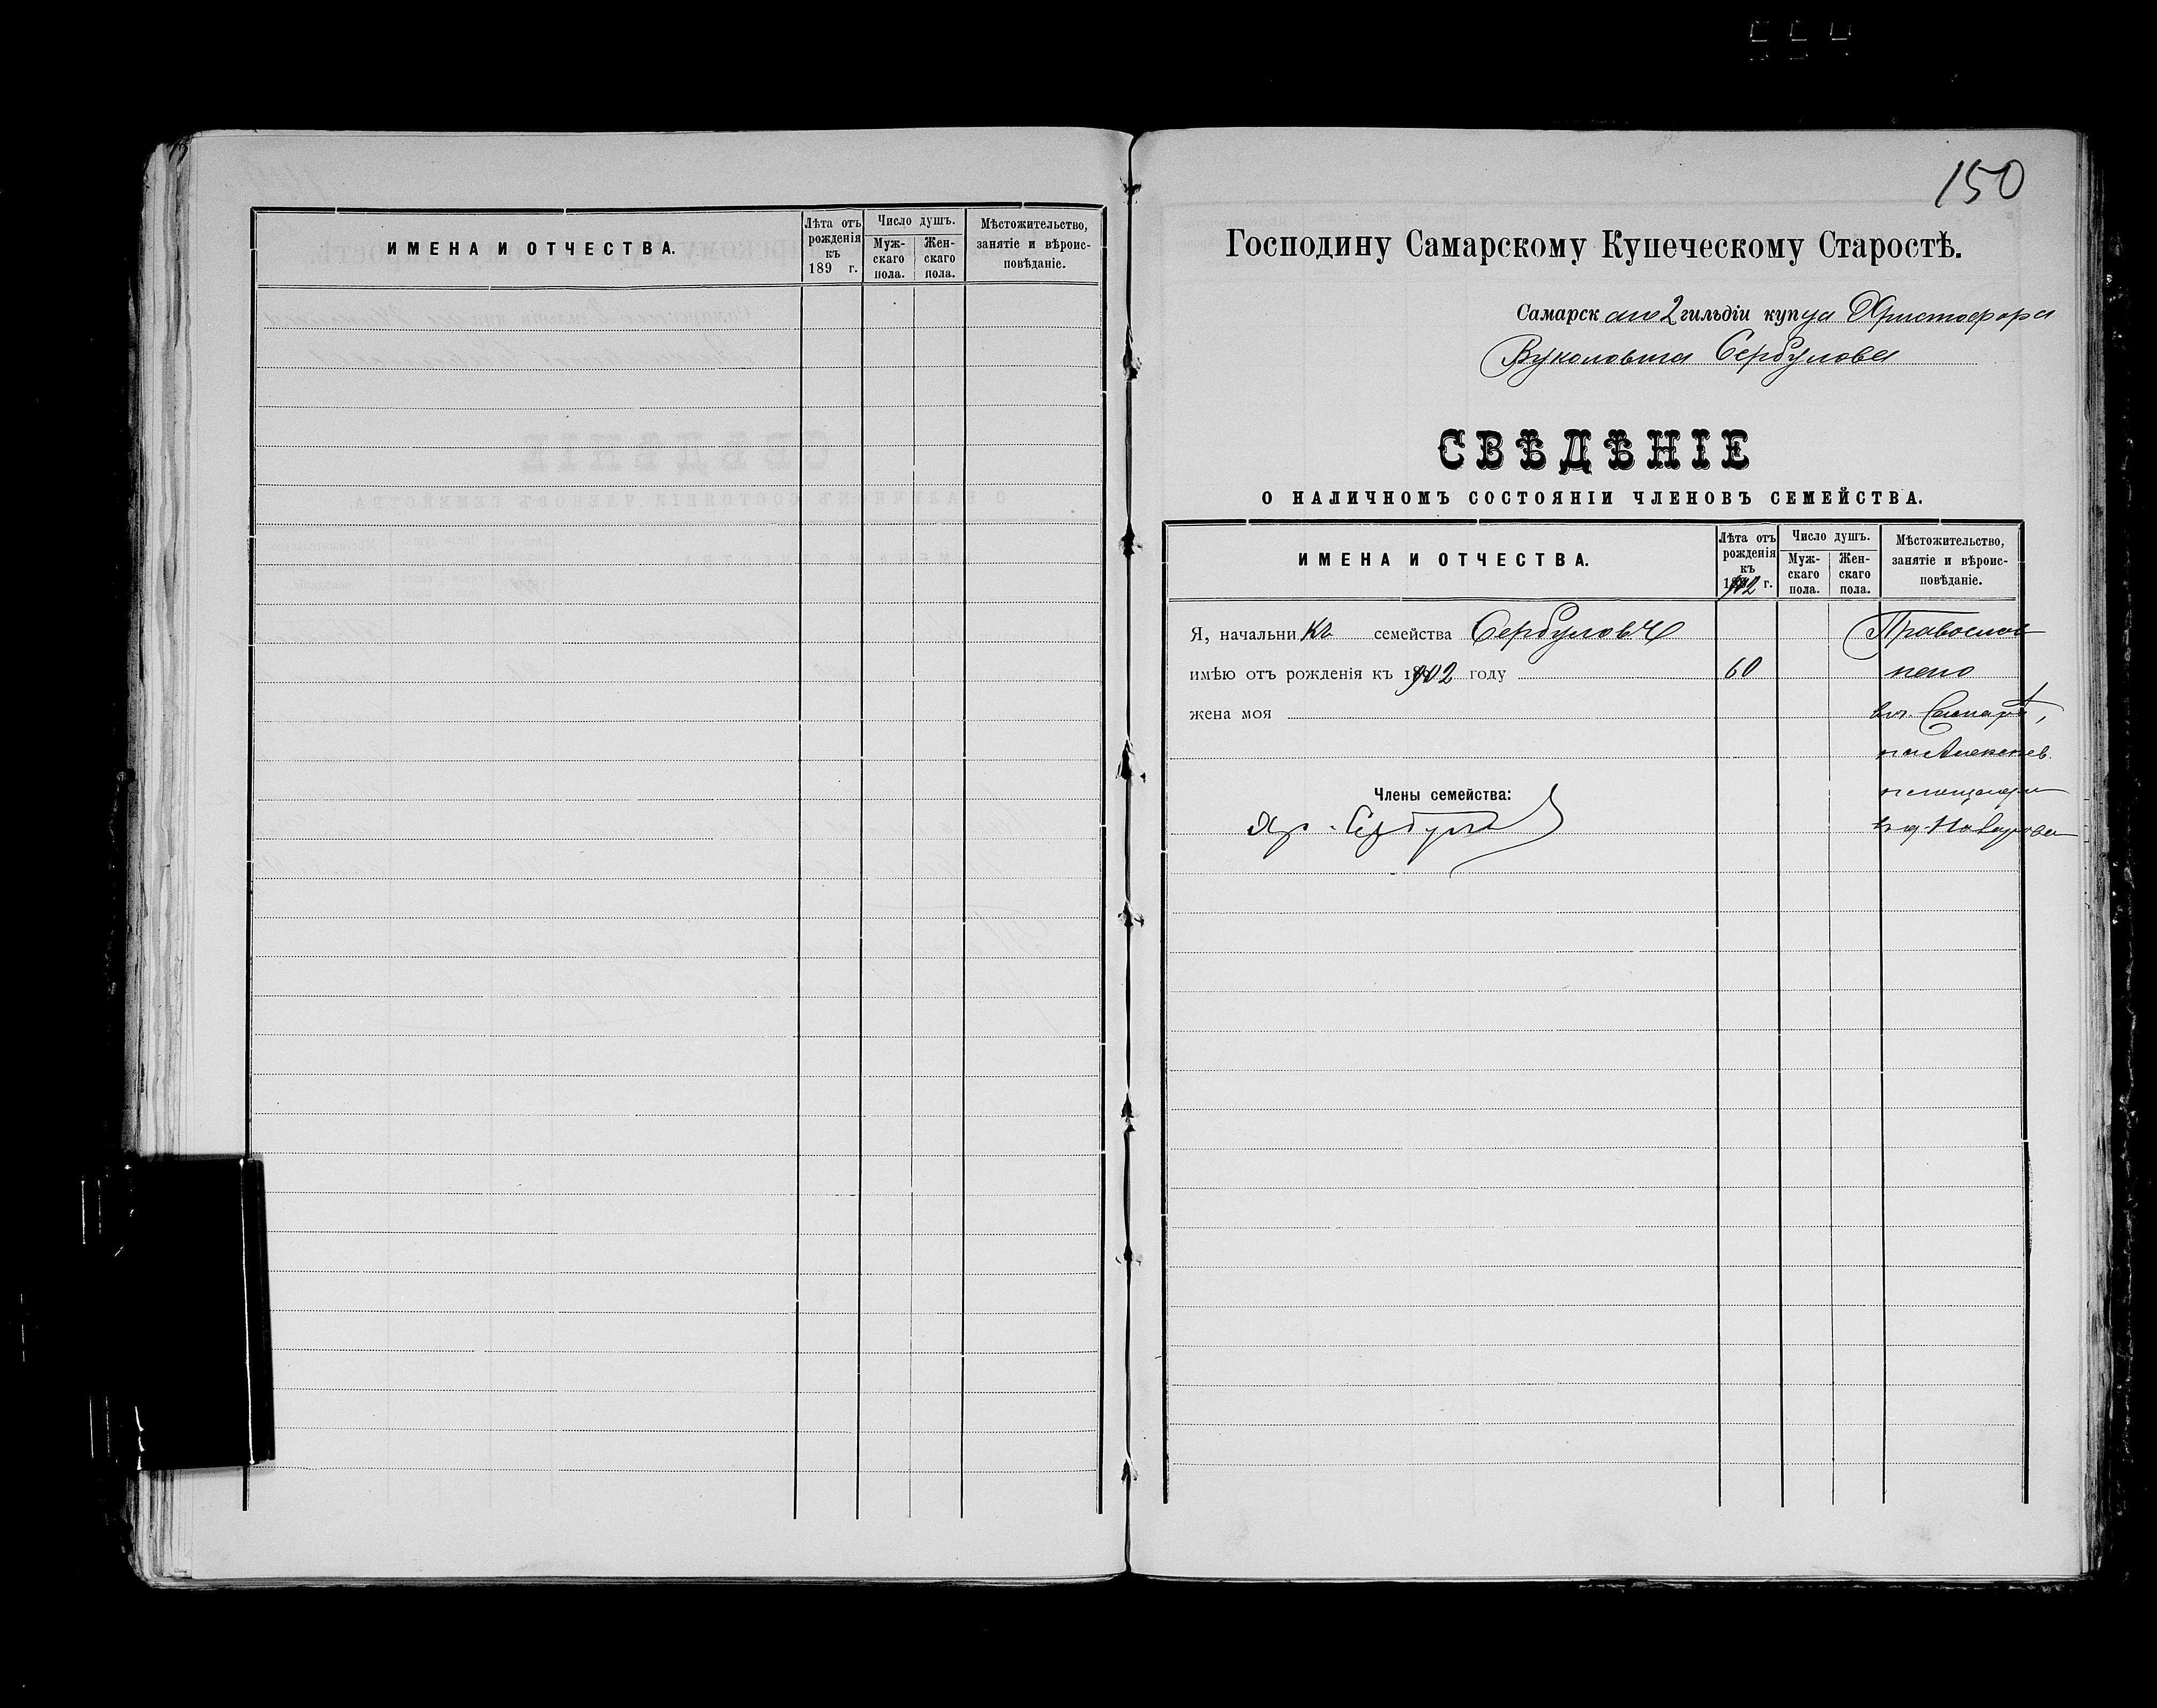 ИМЕНА И ОТЧЕСТВА.
Лѣта отъ рожденія къ 189 г.
Число душъ.
Мужскаго пола.
Женскаго пола.
Мѣстожительство, занятіе и вѣроисповѣданіе.
150
Господину Самарскому Купеческому Старостѣ.
Самарскаго 2 гильдіи купца Христофора
Вуколовича Сербулова
СВѢДѢНІЕ
О НАЛИЧНОМЪ СОСТОЯНІИ ЧЛЕНОВЪ СЕМЕЙСТВА.
ИМЕНА И ОТЧЕСТВА.
Лѣта отъ рожденія къ 1902 г.
Число душъ.
Мужскаго пола.
Женскаго пола.
Мѣстожительство, занятіе и вѣроисповѣданіе.
Я, начальникъ семейства Сербуловъ Православ
имѣю отъ рожденія къ 1902 году 60
жена моя въ г. Самарѣ,
на Алексѣев.
площади
въ д. Назарова
Члены семейства:
Хр. Сербулов